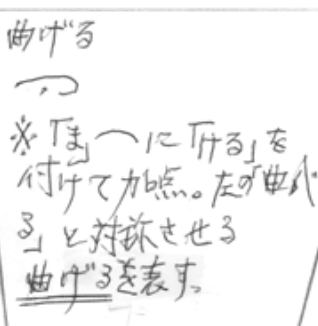 曲げる
※「ま」⌒に「ける」を
付けて加点。左の「曲が
る」と対称させる
曲げるを表す。